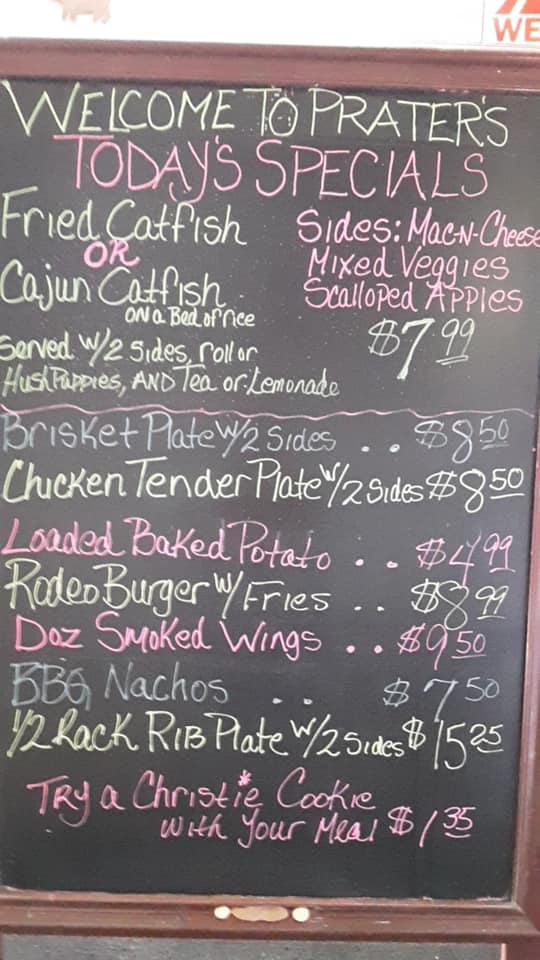 WE
WELCOME TO PRATER'S
TODAY'S SPECIALS
Fried Catfish
OR
Cajun Catfish
ON a Bed of rice
Served w/2 Sides, roll or
Hush Puppies, AND Tea or Lemonade
Sides: Mac-N-Cheese
Mixed Veggies
Scalloped Apples
$7.99
Brisket Plate w/2 Sides . . $8.50
Chicken Tender Plate w/2 Sides $8.50
Loaded Baked Potato . . $4.99
Rodeo Burger w/ Fries . . $8.99
Doz Smoked Wings . . $9.50
BBQ Nachos . . $7.50
1/2 Rack Rib Plate w/2 Sides $15.25
Try a Christie Cookie
with Your Meal $1.35